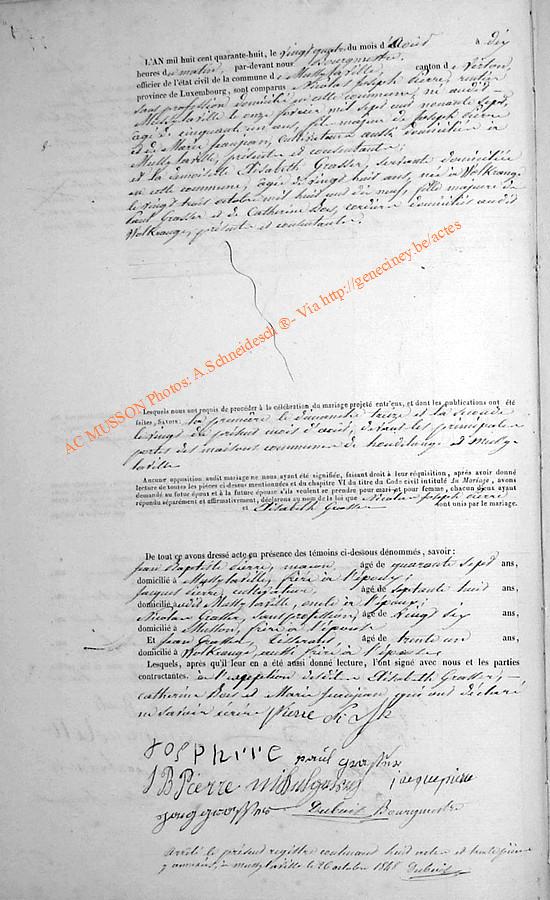 L'AN mil huit cent quarante-huit, le vingt quatre du mois d'août à dix
heures du matin, par-devant nous Bourgmestre,
officier de l'état civil de la commune de Mussy la ville, canton de Virton,
province de Luxembourg, sont comparus Nicolas Joseph Pierre, rentier
sans profession domicilié en cette commune, né audit
Mussy la ville le onze mil sept cent nonante sept,
âgé de cinquante un ans, fils majeur de Joseph Pierre
et de Marie Jeanjean, cultivateurs aussi domiciliés à
Mussy la ville, présents et consentants;
et la demoiselle Elisabeth Grosser, servante domiciliée
en cette commune, âgée de vingt huit ans, née à Wolkrange
le vingt huit octobre mil huit cent dix neuf, fille majeure de
Paul Grosser et de Catherine domiciliés audit
Wolkrange, présents et consentants.
Lesquels nous ont requis de procéder à la célébration du mariage projeté entr'eux, et dont les publications ont été
faites, Savoir: la première le dimanche treize et la seconde
le vingt du présent mois d'août, devant les principales
portes des maisons communes de hondelange et Mussy
la ville
Aucune opposition audit mariage ne nous ayant été signifiée, faisant droit à leur réquisition, après avoir donné
lecture de toutes les pièces ci-dessus mentionnées et du chapitre VI du titre du Code civil intitulé du Mariage, avons
demandé au futur époux et à la future épouse s'ils veulent se prendre pour mari et pour femme, chacun d'eux ayant
répondu séparément et affirmativement, déclarons au nom de la loi que Nicolas Joseph Pierre
et Elisabeth Grosser sont unis par le mariage.
De tout ce avons dressé acte en présence des témoins ci-dessous dénommés, savoir:
Jean Baptiste Pierre, maçon, âgé de quarante sept ans,
domicilié à Mussy la ville, frère à l'époux;
Jacques Pierre, cultivateur, âgé de septante huit ans,
domicilié audit Mussy la ville, oncle à l'époux;
Nicolas Grosser, sans profession, âgé de vingt six ans,
domicilié à Musson, frère à l'épouse
Et Jean Grosser, âgé de trente un ans,
domicilié à Wolkrange aussi frère à l'épouse.
Lesquels, après qu'il leur en a été aussi donné lecture, l'ont signé avec nous et les parties
contractantes. à l'exception de Elisabeth Grosser,
catherine et Marie jeanjean, qui ont déclaré
ne savoir écrire Pierre
JOSPH paul grosser
J B Pierre jacque piere
Dubuis Bourgmestre
Arrêté le présent registre contenant huit actes et
y annexées, à mussy la ville le 26 octobre 1848 Dubuis
AC MUSSON Photos: A.Schneidesch ®- Via http://geneciney.be/actes